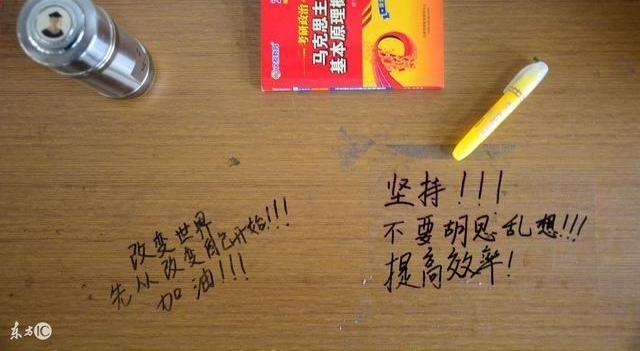 考研政治
马克思主
基本原理概
改变世界
先从改变自己开始!!!
加油!!!
坚持!!!
不要胡思乱想!!!
提高效率!
东方IC